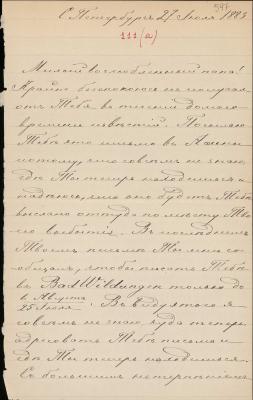 597.
С. Петербургъ 27 Июля 1883
111 (a)
Милый возлюбленный папа!
Крайне безпокоюся не получая
отъ Тебя въ течении долгаго
времени извѣстий. Посылаю
Тебѣ это письмо въ Афины
потому, что совсѣмъ не знаю,
гдѣ Ты теперь находишься и
надѣюсь, что оно будетъ Тебѣ
выслано оттуда по мѣсту Тво-
его
Въ послѣднемъ
Твоемъ письмѣ Ты мнѣ со-
общаешь, чтобы писать Тебѣ
въ Bad Wildungen только до
25 Августа
Въ виду этого я
совсѣмъ не знаю, куда теперь
адресовать Тебѣ письма и
гдѣ Ты теперь находишься.
Съ большимъ нетерпѣниемъ